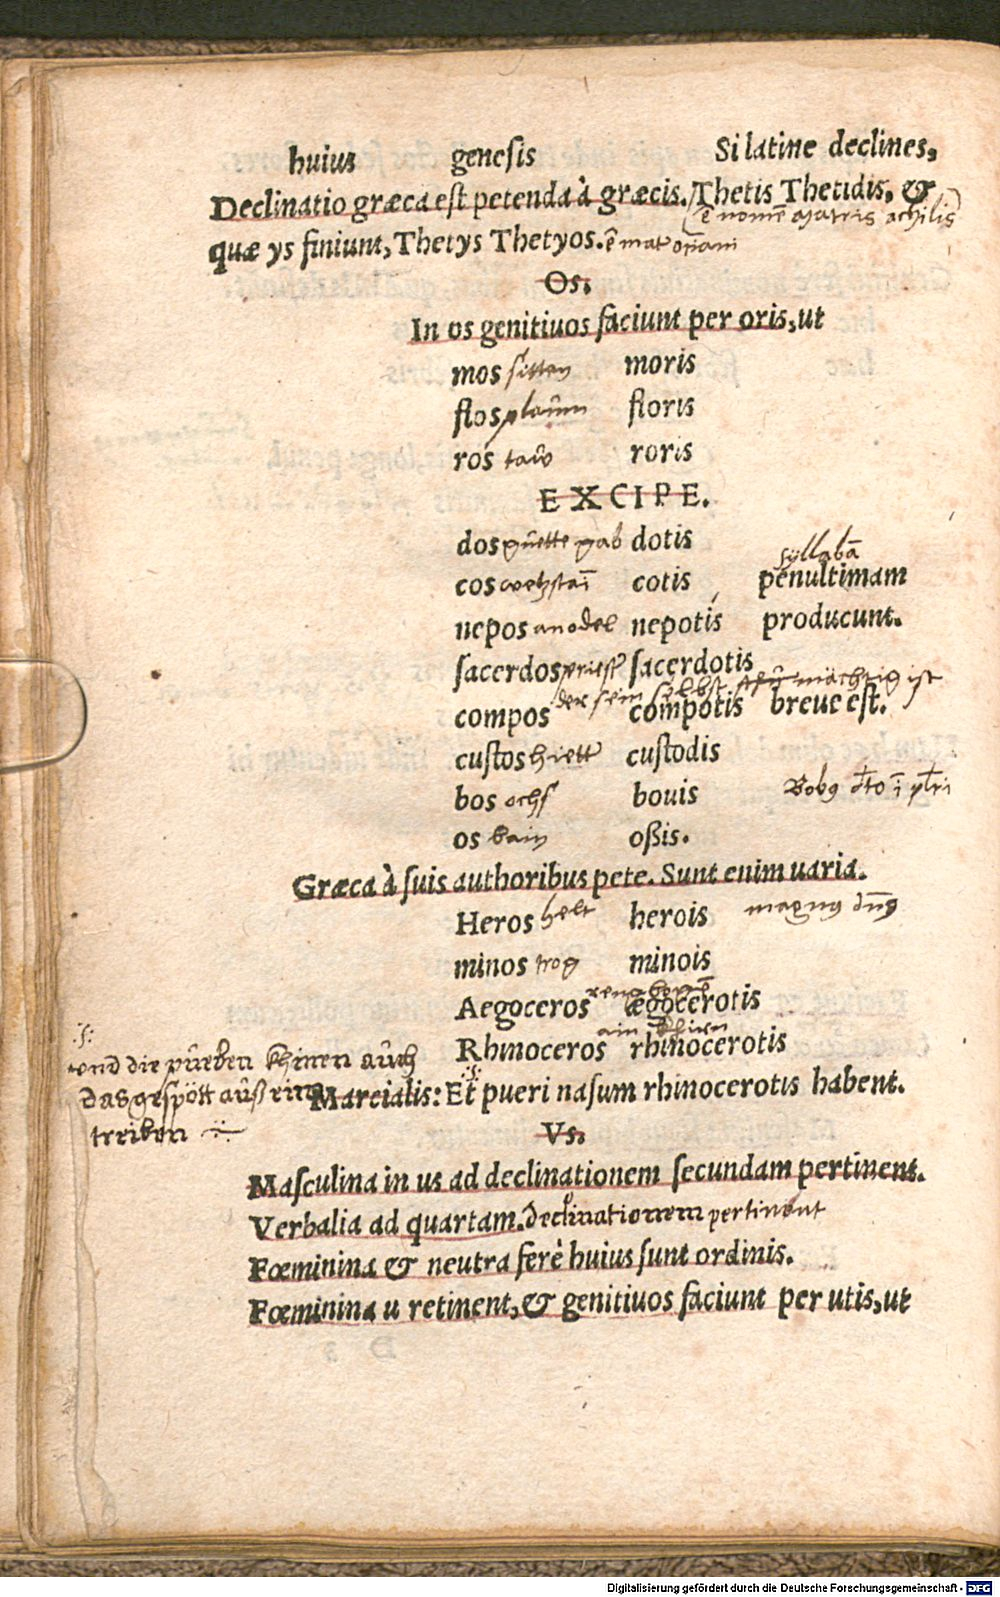 huius genesis Si latine declines,
Declinatio græca est petenda à græcis. Thetis Thetidis, &
ē nomē matris achilis
quæ ys finiunt, Thetys Thetyos. ē mat
Os.
In os genitiuos faciunt per oris, ut
mos sitten moris
flos plaum floris
ros taw roris
EXCIPE.
dos gab dotis
syllabā
cos wetzstaī cotis penultimam
nepos nepotis producunt.
sacerdos priest sacerdotis
der sein selbst mächtig ist
compos compotis breue est.
custos hiett custodis
bos ochs bouis Bobus
os bain oßis.
Græca à suis authoribus pete. Sunt enim uaria.
Heros helt herois magnus dn̄s
minos minois
Aegoceros ægocerotis
ain
Rhinoceros rhinocerotis
vnd die pueben khinen auch
das gespött auß ein
treiben
Marcialis: Et pueri nasum rhinocerotis habent.
Vs.
Masculina in us ad declinationem secundam pertinent.
Verbalia ad quartam. declinationem pertinent
Fœminina & neutra ferè huius sunt ordinis.
Fœminina u retinent, & genitiuos faciunt per utis, ut
Digitalisierung gefördert durch die Deutsche Forschungsgemeinschaft - DFG